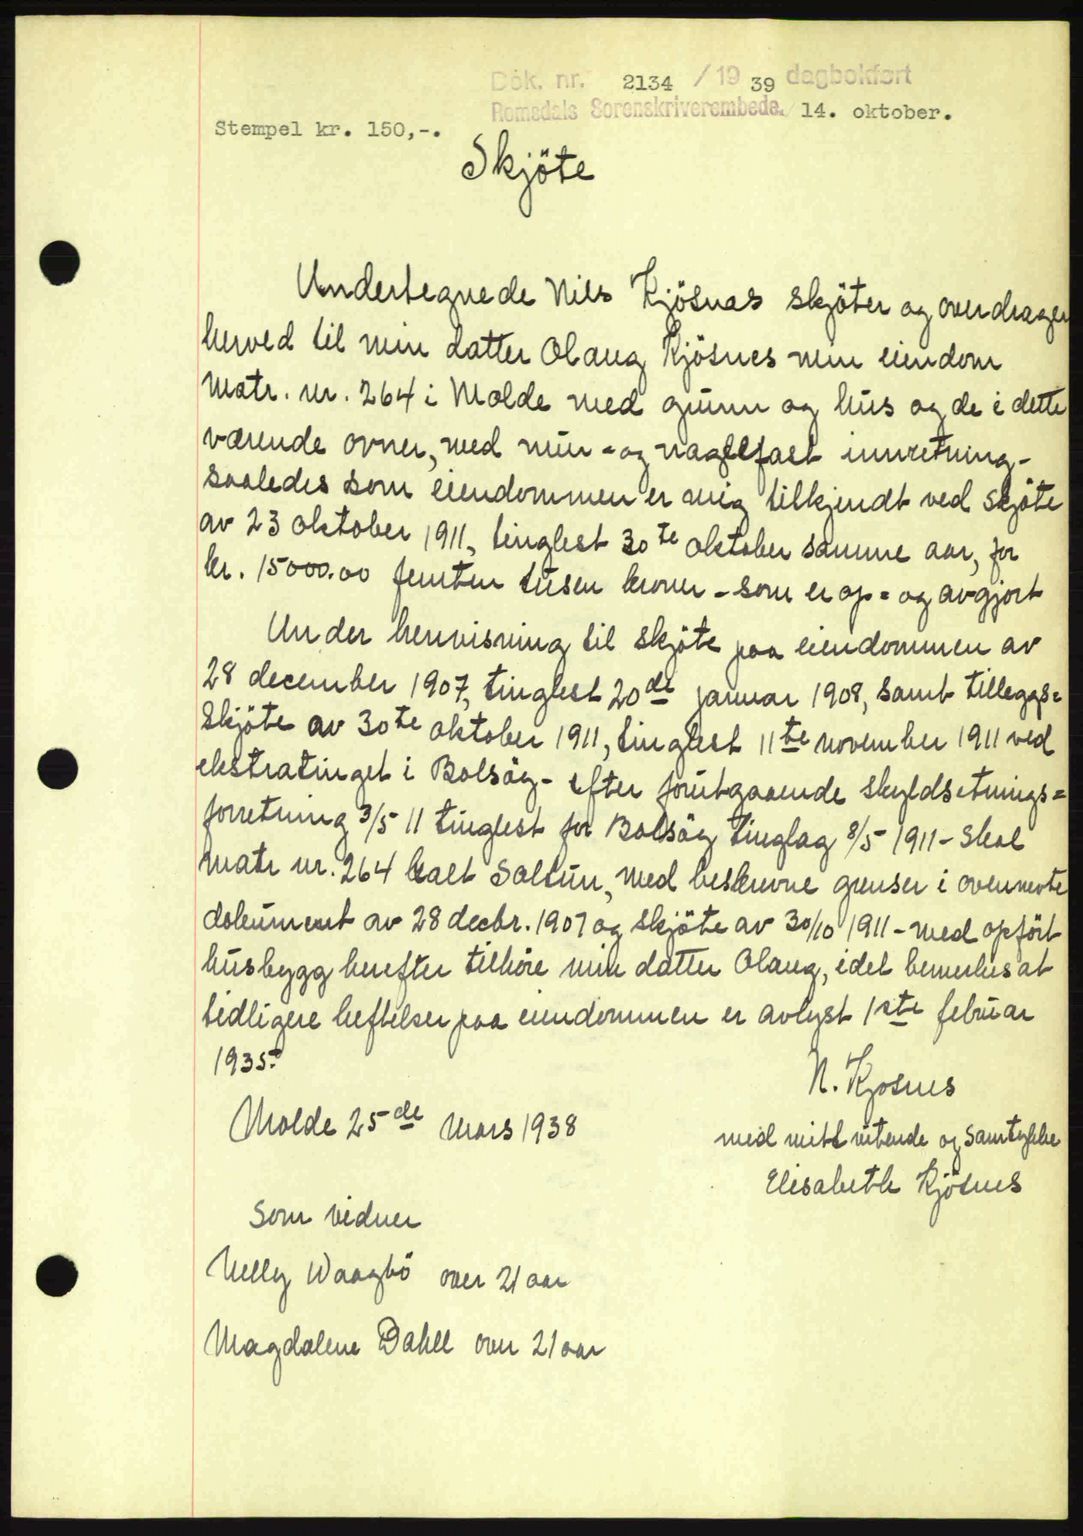 Dok. nr. 2134 / 19 39 dagbokført
Romsdals Sorenskriverembede. 14. oktober.
Stempel kr. 150,-.
Skjöte
Undertegnede Nils Kjösnes skjöter og overdrager
herved til min datter Olaug Kjösnes min eiendom
Matr. nr. 264 i Molde med grunn og hus og de i dette
værende ovner, med mur- og naglefast innretning-
saaledes som eiendommen er mig tilkjendt ved skjöte
av 23 oktober 1911, tinglest 30te oktober samme aar, for
kr. 15000.00 femten tusen kroner - som er op= og avgjort
Under henvisning til skjöte paa eiendommen av
28 december 1907, tinglest 20de januar 1908, samt tilleggs=
skjöte av 30te oktober 1911, tinglest 11te november 1911 ved
ekstratinget i Bolsöy- efter forutgaaende skyldsetnings=
forretning 3/5 11 tinglest for Bolsöy tinglag 8/5 1911 - skal
matr nr. 264 kalt Soltun, med beskrevne grenser i ovennevte
dokument av 28 decbr. 1907 og skjöte av 30/10 1911 - med opfört
husbygg herefter tilhöre min datter Olaug, idet bemerkes at
tidligere heftelser paa eiendommen er avlyst 1ste februar
1935.
N. Kjosnes
Molde 25de Mars 1938
med mitt vitende og samtykke
Elisabeth Kjösnes
Som vidner
Nelly Waagbö over 21 aar
Magdalene Dahll over 21 aar